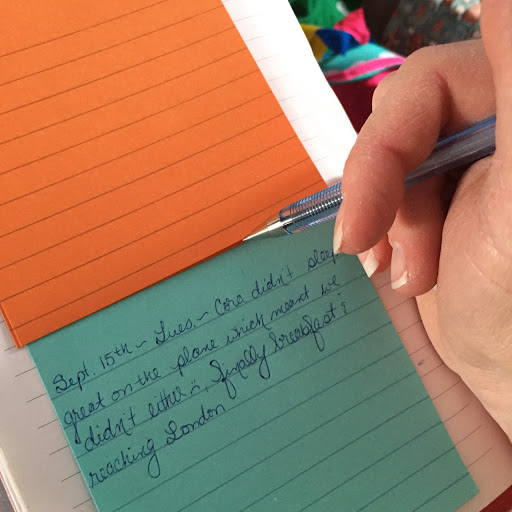 Sept. 15th ~ Tues. ~ Cora didn't sleep
great on the plane which meant we
didn't either :(, finally breakfast &
reaching London